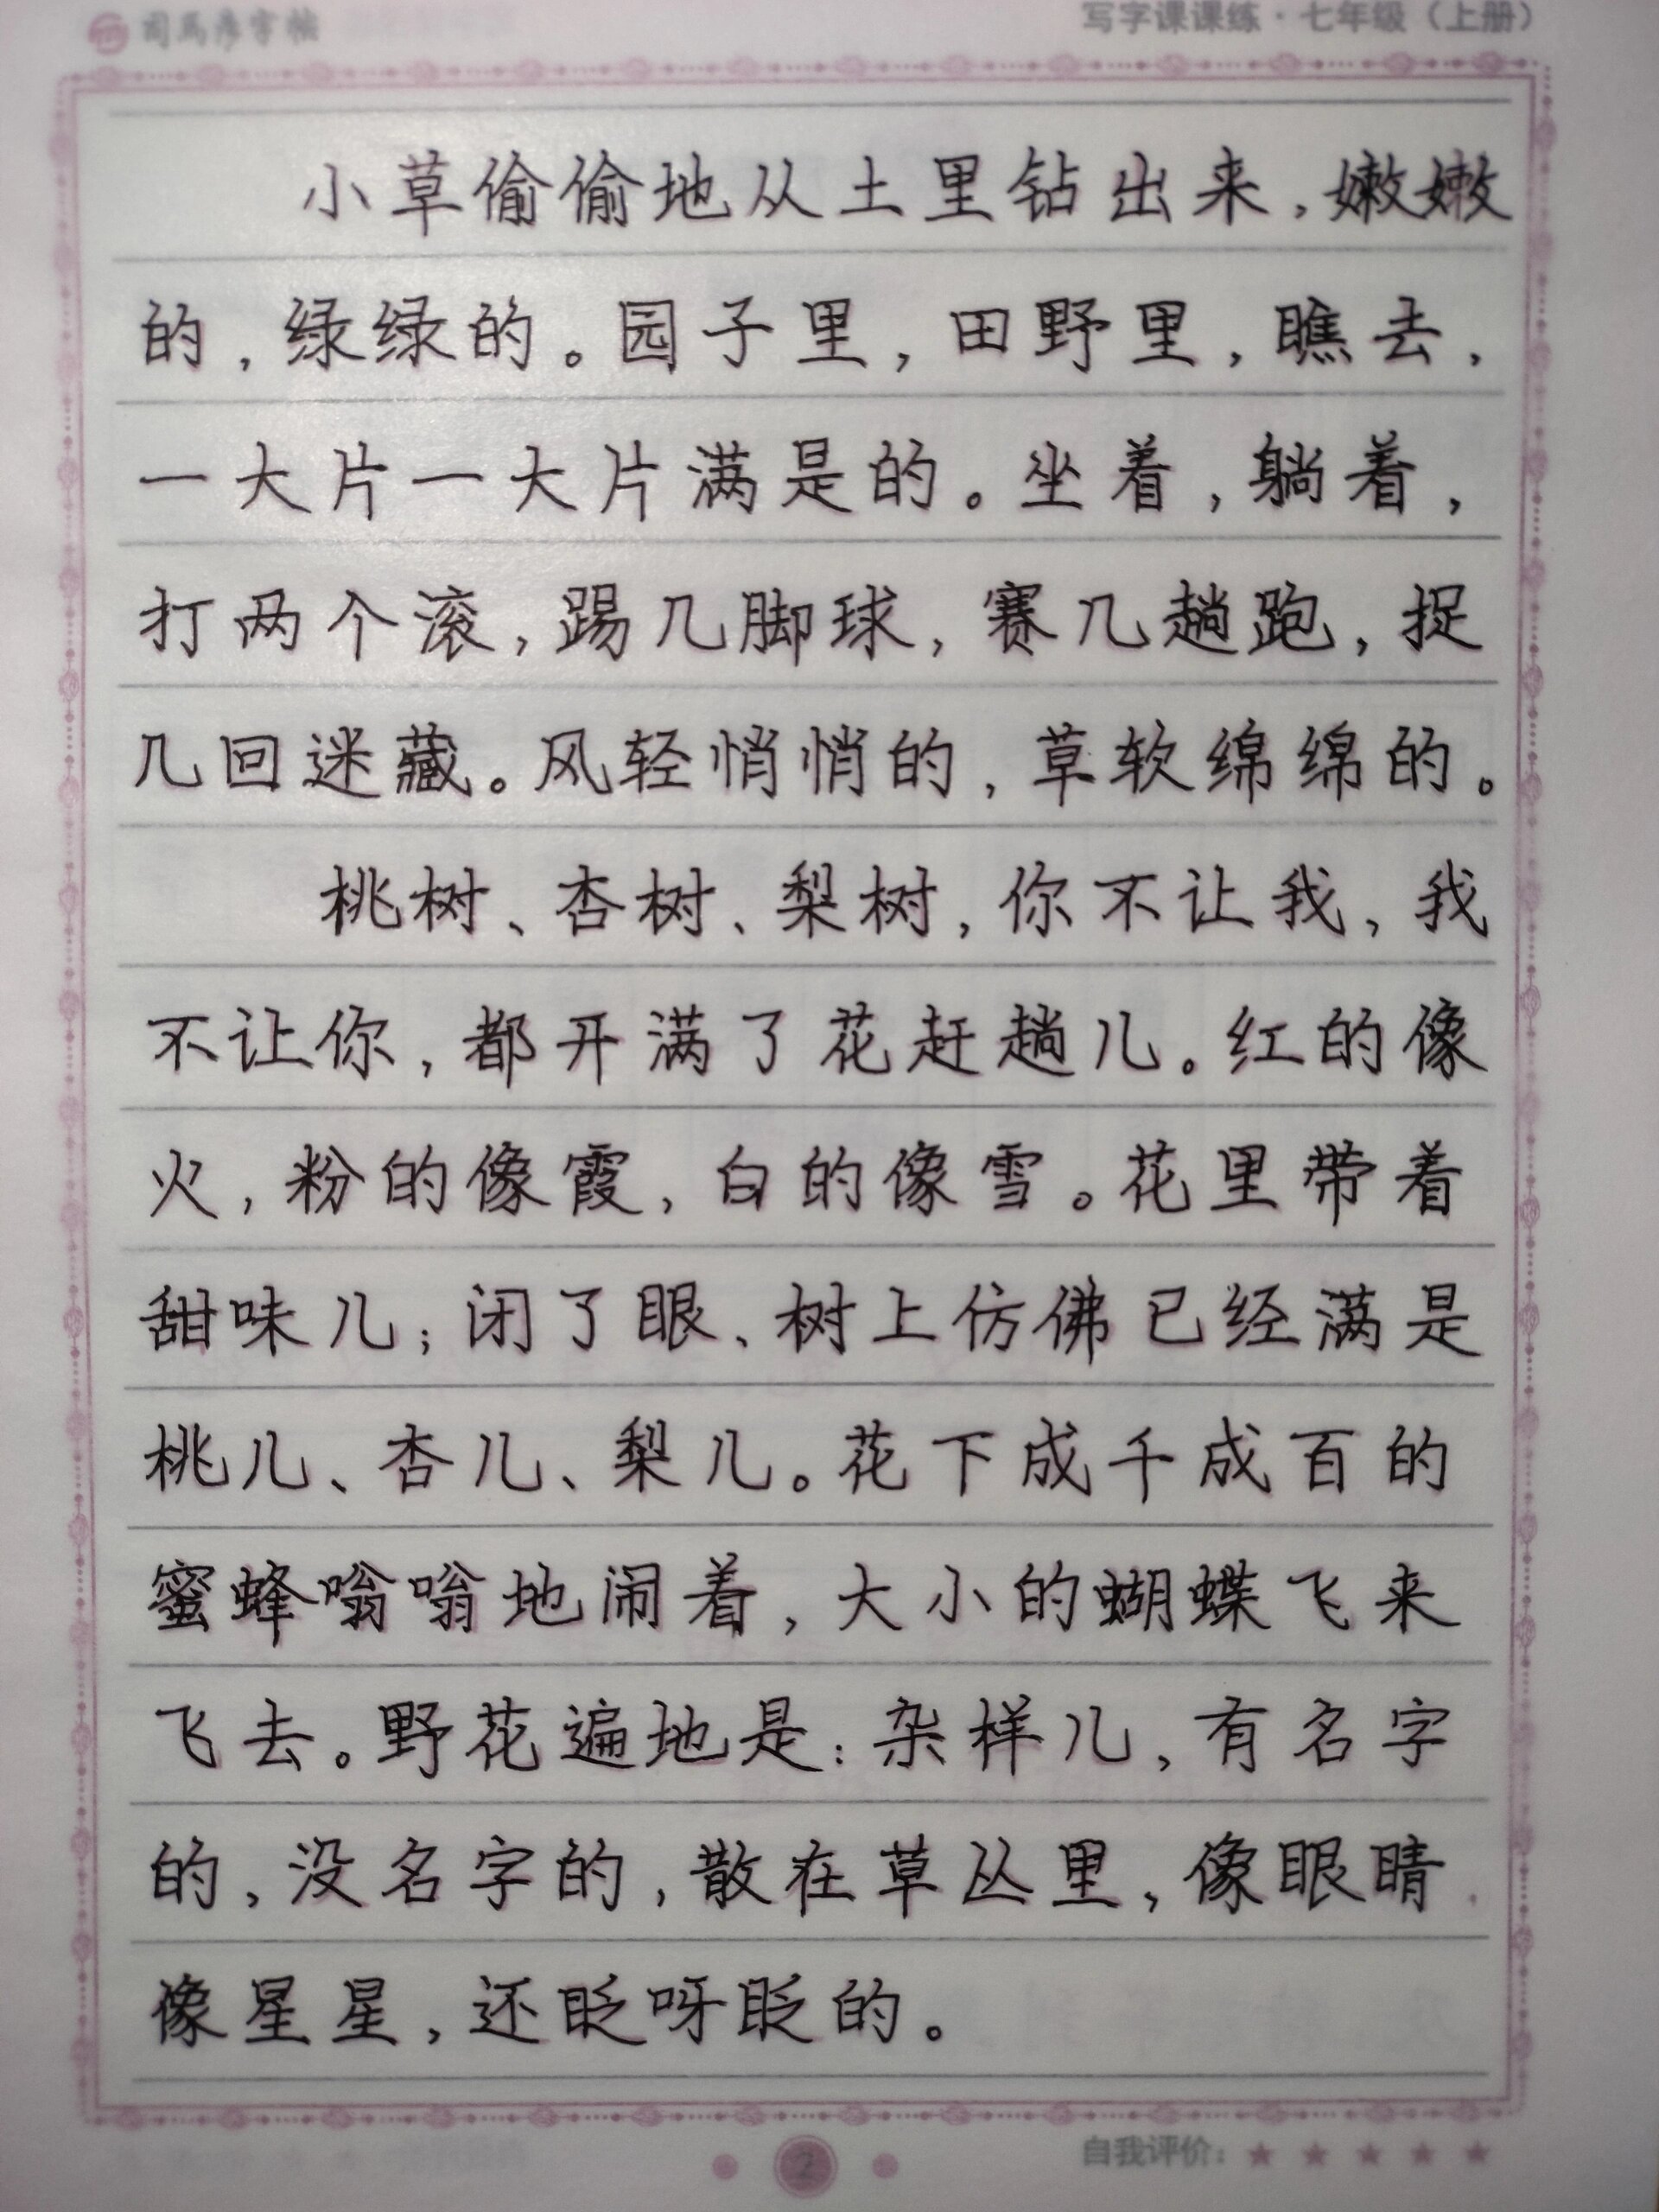 司马彦字帖
写字课课练·七年级（上册）
小草偷偷地从土里钻出来，嫩嫩
的，绿绿的。园子里，田野里，瞧去，
一大片一大片满是的。坐着，躺着，
打两个滚，踢几脚球，赛几趟跑，捉
几回迷藏。风轻悄悄的，草软绵绵的。
桃树、杏树、梨树，你不让我，我
不让你，都开满了花赶趟儿。红的像
火，粉的像霞，白的像雪。花里带着
甜味儿；闭了眼、树上仿佛已经满是
桃儿、杏儿、梨儿。花下成千成百的
蜜蜂嗡嗡地闹着，大小的蝴蝶飞来
飞去。野花遍地是：杂样儿，有名字
的，没名字的，散在草丛里，像眼睛，
像星星，还眨呀眨的。
2
自我评价：★ ★ ★ ★ ★